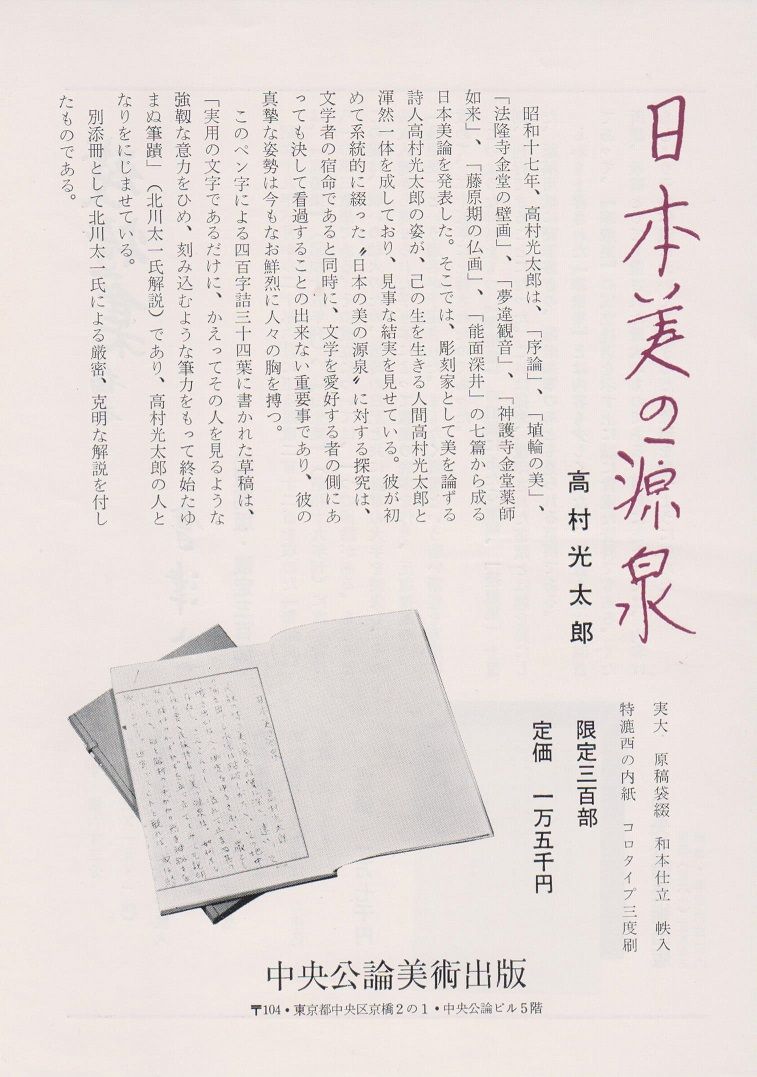 日本美の源泉
高村光太郎
昭和十七年、高村光太郎は、「序論」、「埴輪の美」、
「法隆寺金堂の壁画」、「夢違観音」、「神護寺金堂薬師
如来」、「藤原期の仏画」、「能面深井」の七篇から成る
日本美論を発表した。そこでは、彫刻家として美を論ずる
詩人高村光太郎の姿が、己の生を生きる人間高村光太郎と
渾然一体を成しており、見事な結実を見せている。彼が初
めて系統的に綴った〝日本の美の源泉〟に対する探究は、
文学者の宿命であると同時に、文学を愛好する者の側にあ
っても決して看過することの出来ない重要事であり、彼の
真摯な姿勢は今もなお鮮烈に人々の胸を搏つ。
このペン字による四百字詰三十四葉に書かれた草稿は、
「実用の文字であるだけに、かえってその人を見るような
強靱な意力をひめ、刻み込むような筆力をもって終始たゆ
まぬ筆蹟」（北川太一氏解説）であり、高村光太郎の人と
なりをにじませている。
別添冊として北川太一氏による厳密、克明な解説を付し
たものである。
実大 原稿袋綴 和本仕立 帙入
特漉西の内紙 コロタイプ三度刷
限定三百部
定価 一万五千円
中央公論美術出版
〒104・東京都中央区京橋2の1・中央公論ビル5階